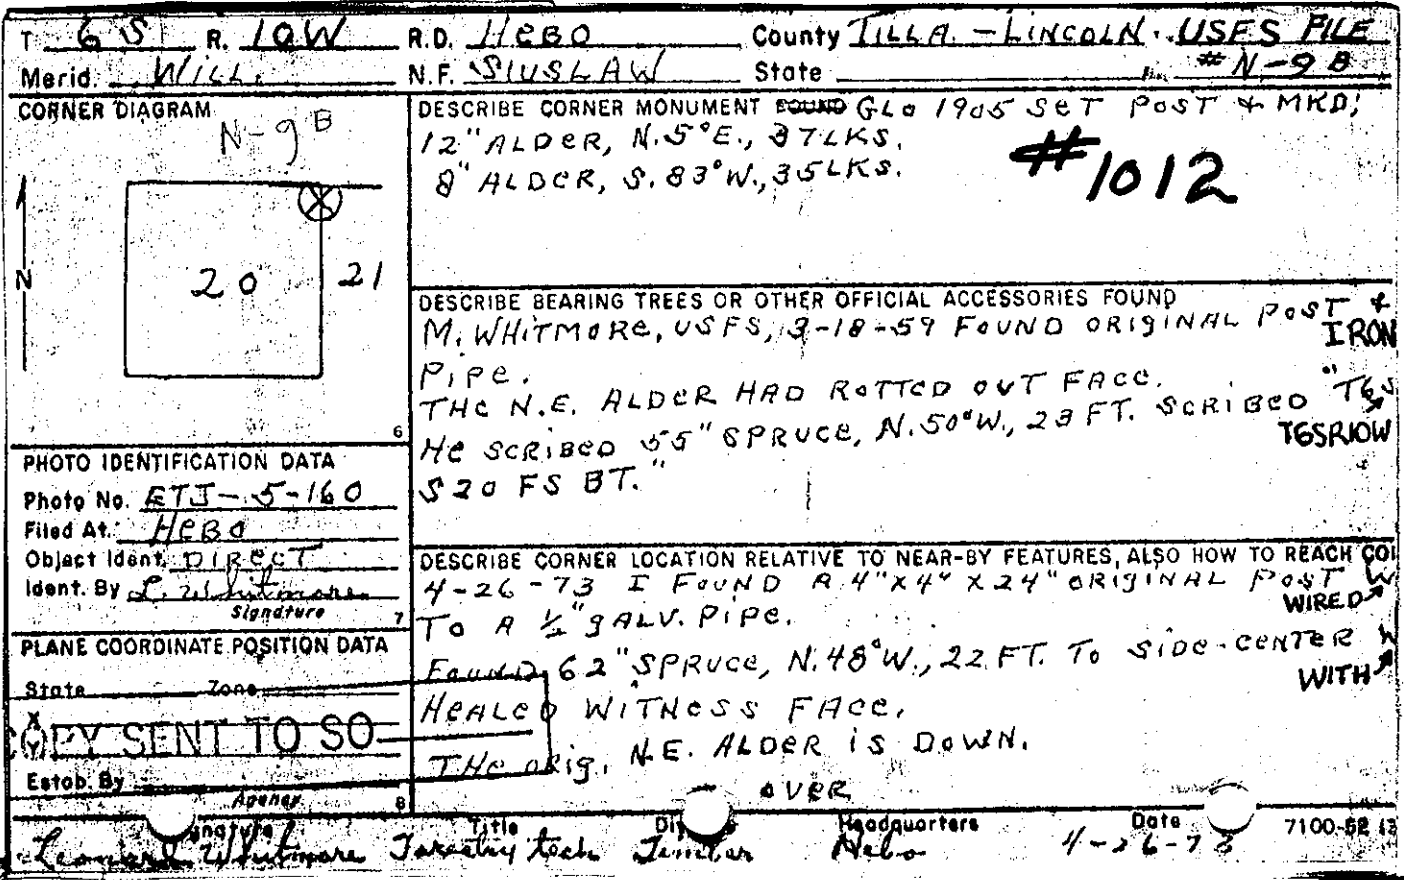 T. 6 S R. 10W R.D. HEBO County TILLA. - LINCOLN. USFS FILE
Merid. WILL. N.F. SIUSLAW State # N-9 B
CORNER DIAGRAM
N-9 B
N
20 21
6
DESCRIBE CORNER MONUMENT FOUND GLO 1905 SET POST & MKD;
12" ALDER, N.5°E., 37 LKS.
8" ALDER, S.83°W., 35 LKS.
#1012
DESCRIBE BEARING TREES OR OTHER OFFICIAL ACCESSORIES FOUND
M. WHITMORE, USFS, 3-18-59 FOUND ORIGINAL POST &
IRON
PIPE.
THE N.E. ALDER HAD ROTTED OUT FACE.
HE SCRIBED 55" SPRUCE, N.50°W., 23 FT. SCRIBED "T6S
T6SR10W
S20 FS BT."
PHOTO IDENTIFICATION DATA
Photo No. ETJ-5-160
Filed At: HEBO
Object Ident. DIRECT
Ident. By L. Whitmore
Signature
7
DESCRIBE CORNER LOCATION RELATIVE TO NEAR-BY FEATURES, ALSO HOW TO REACH CO
4-26-73 I FOUND A 4" X 4" X 24" ORIGINAL POST W
WIRED
TO A 1/2" GALV. PIPE.
FOUND 62" SPRUCE, N.48°W., 22 FT. TO SIDE-CENTER W
WITH
HEALED WITNESS FACE.
THE ORIG. N.E. ALDER IS DOWN.
OVER
PLANE COORDINATE POSITION DATA
State Zone
X
Y
COPY SENT TO SO
Estab. By
Agency
8
Title Headquarters Date 7100-52
Leonard Whitmore Forestry tech Timber Hebo 4-26-73